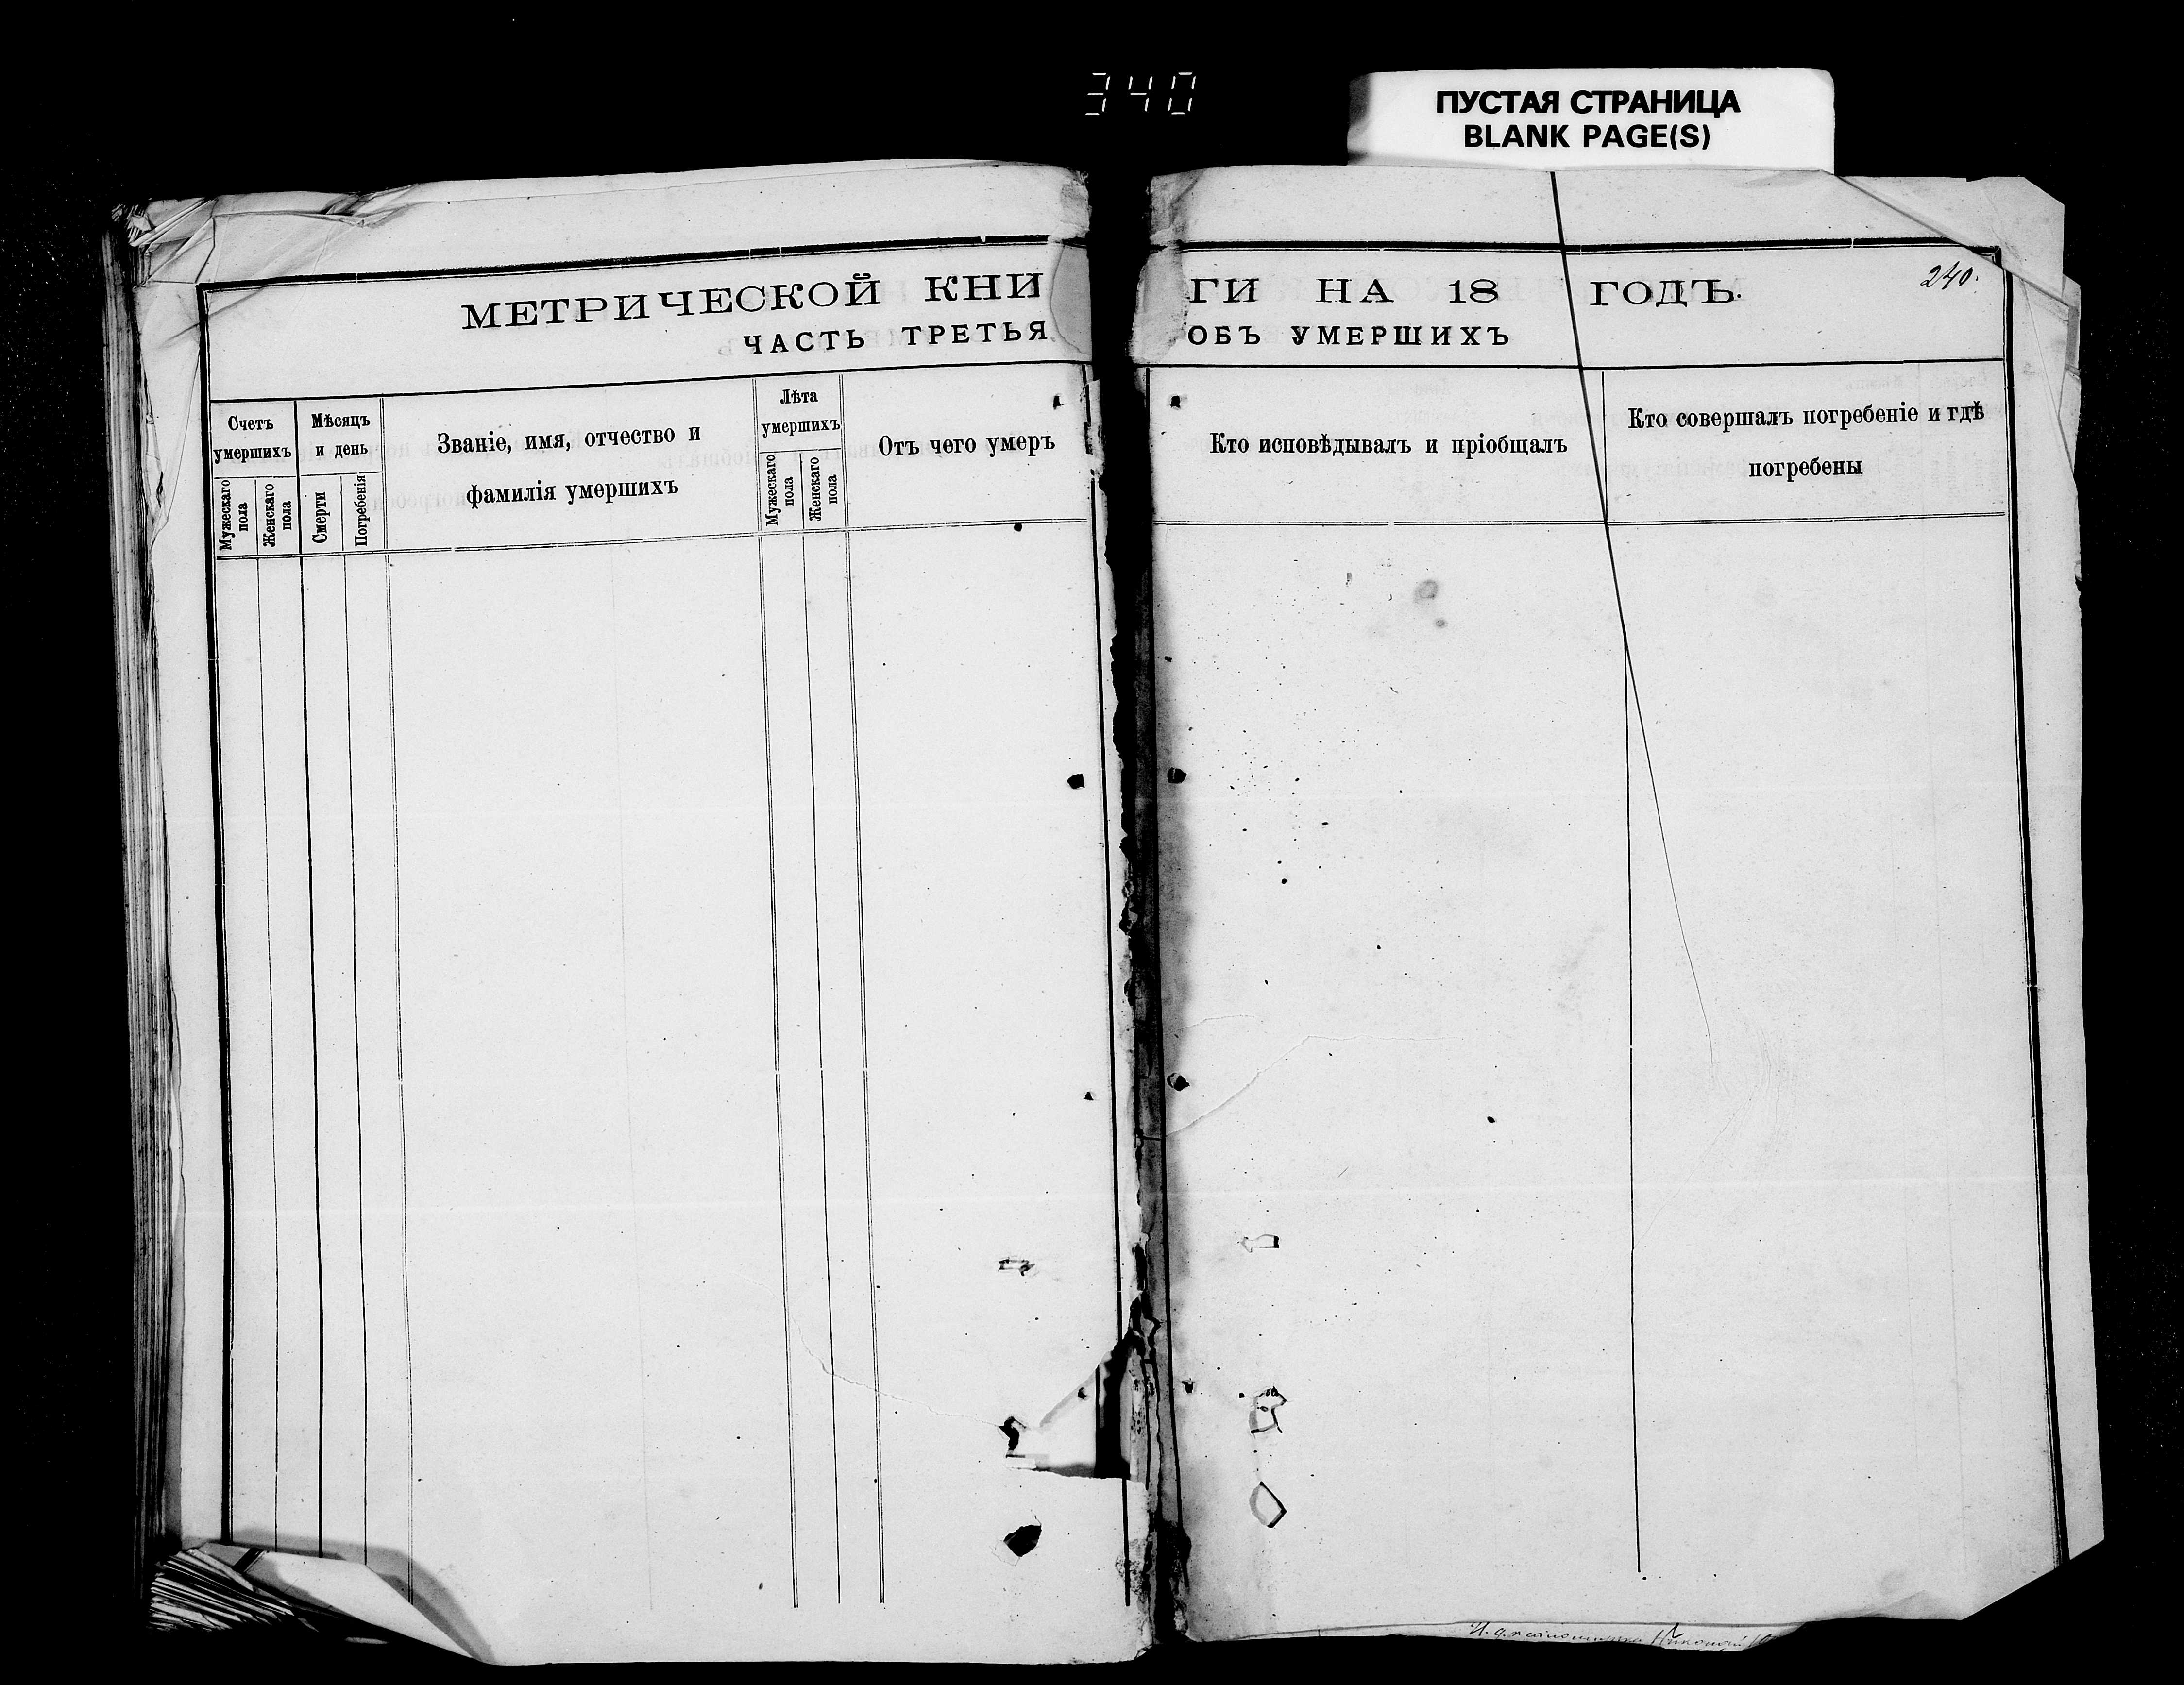 340
ПУСТАЯ СТРАНИЦА
BLANK PAGE(S)
МЕТРИЧЕСКОЙ КНИГИ НА 18 ГОДЪ.
240.
ЧАСТЬ ТРЕТЬЯ ОБЪ УМЕРШИХЪ
Счетъ
умершихъ
Мужескаго
пола
Женскаго
пола
Мѣсяцъ
и день
Смерти
Погребенія
Званіе, имя, отчество и
фамилія умершихъ
Лѣта
умершихъ
Мужескаго
пола
Женскаго
пола
Отъ чего умеръ
Кто исповѣдывалъ и пріобщалъ
Кто совершалъ погребеніе и гдѣ
погребены